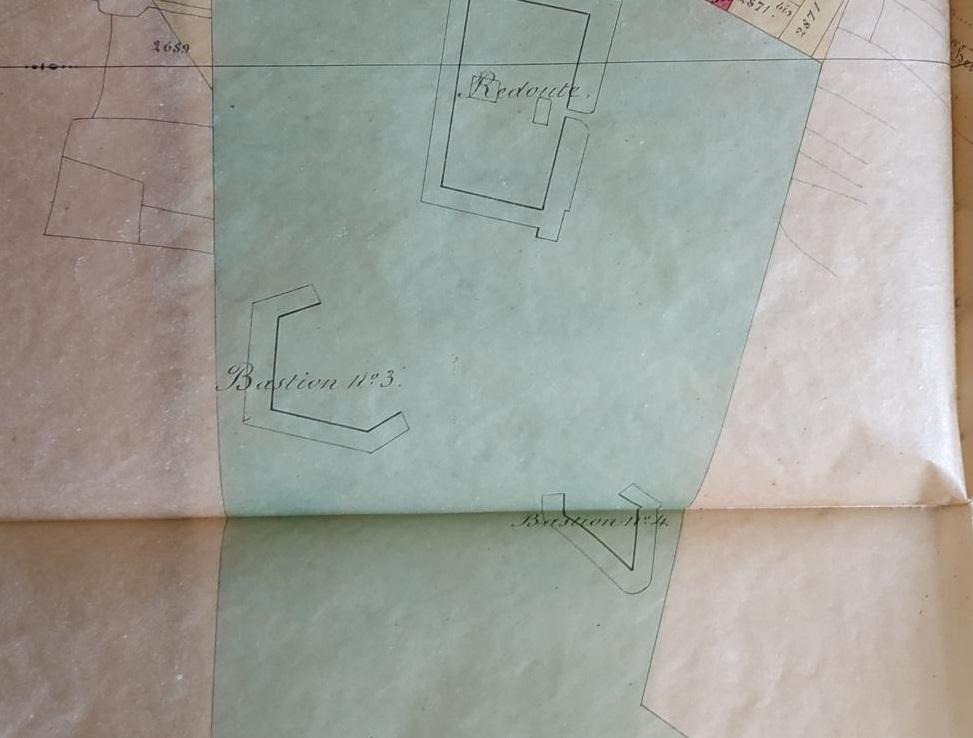 2689
2871 bis
2871
Redoute.
Bastion Nº 3.
Bastion Nº 4.